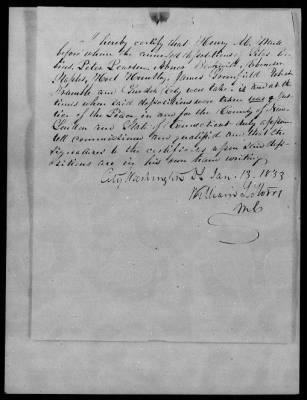 I hereby certify that Henry M. Waite
before whom the annexed depositions, Giles
Peter Pearson, Abner Beckwith, Ebenezer
Staples, Hoel Huntly, James Greenfield
and were taken is and at the
times when said depositions were taken was a Jus
tice of the Peace, in and for the County of New
London and State of Connecticut duly appoin
ted commissioned and qualified and that the
signatures to the certificates upon said depo
sitions are in his own hand writing
City Washington Jan. 13. 1833
William L. Storrs
M C